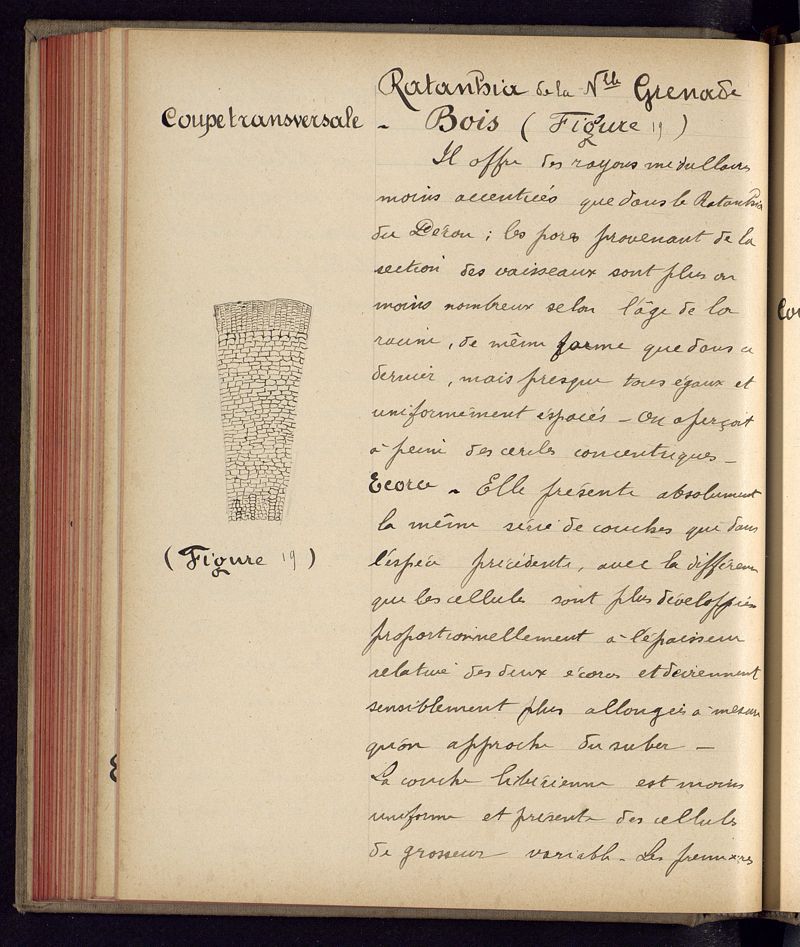 Coupe transversale
(Figure 19)
Ratanhia de la Nlle Grenade
- Bois (Figure 19)
Il offre des rayons médullaires
moins accentués que dans le Ratanhia
du Pérou ; les pores provenant de la
section des vaisseaux sont plus ou
moins nombreux selon l'âge de la
racine, de même forme que dans ce
dernier, mais presque tous égaux et
uniformément espacés - On aperçoit
à peine des cercles concentriques -
Ecorce - Elle présente absolument
la même série de couches que dans
l'espèce précédente, avec la différence
que les cellules sont plus développées
proportionnellement à l'épaisseur
relative des deux écorces et deviennent
sensiblement plus allongées à mesure
qu'on approche du suber -
La couche libérienne est moins
uniforme et présente des cellules
de grosseur variable - Les premières